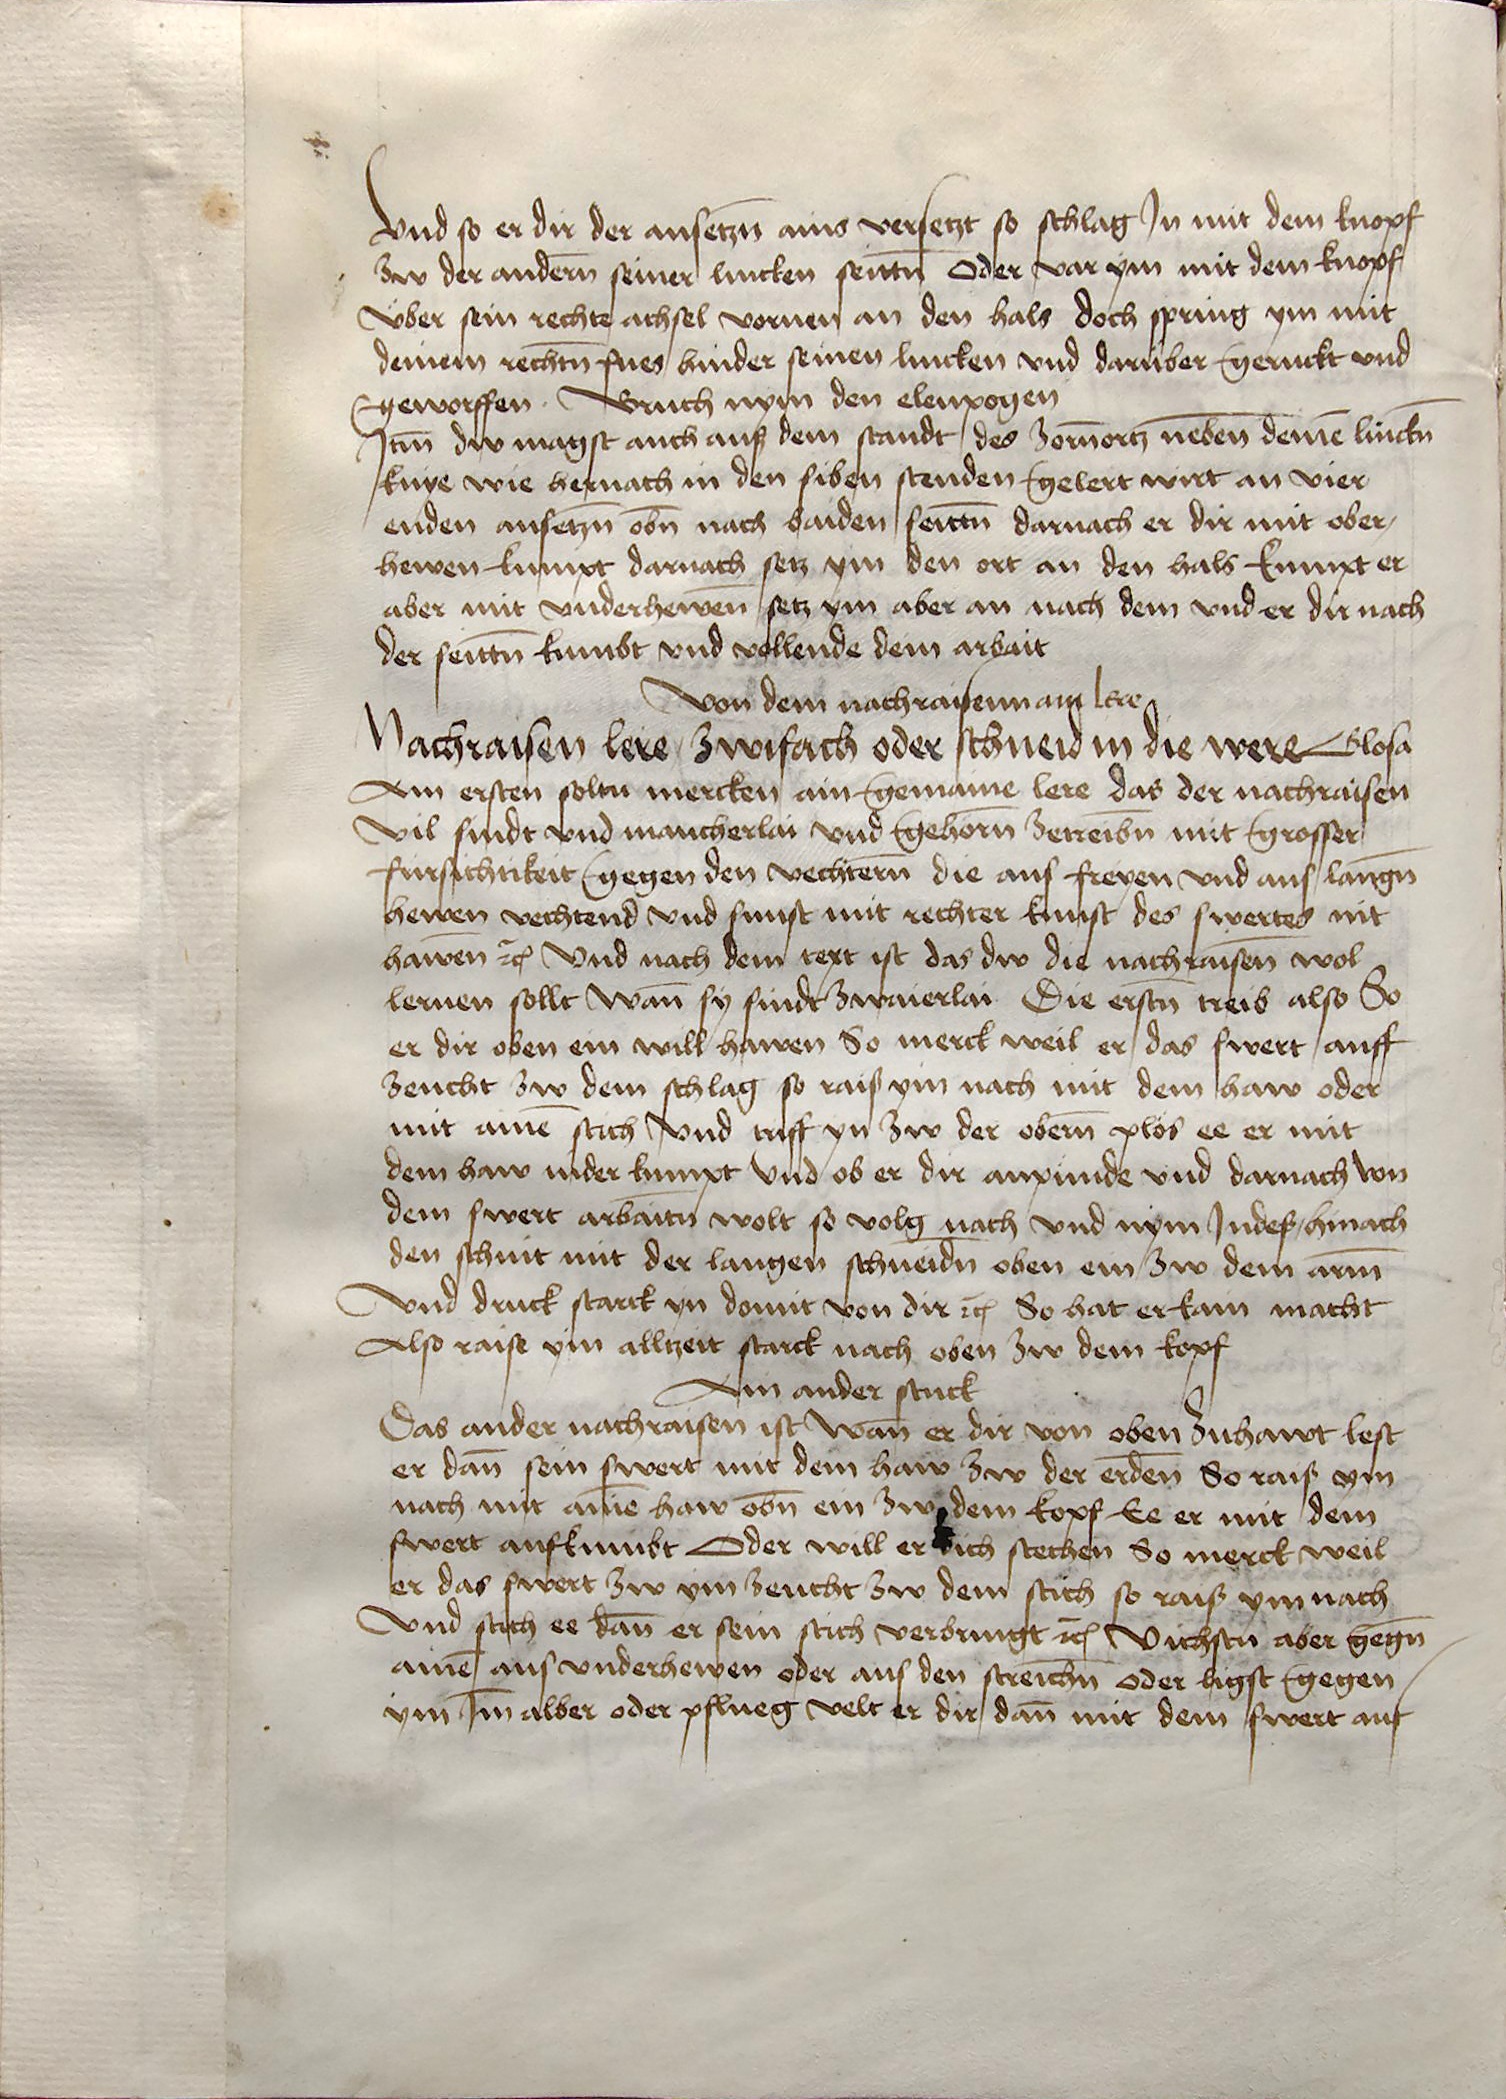 Vnd so er dir der ansetzn̄ ains versetzt so schlag Jn mit dem knopf
zw der andern̄ seiner lincken seittn̄ Oder var ÿm mit dem knopf
vber sein rechte achsel vornen an den hals doch spring ym mit
deinem rechtn̄ fues hinder seinen lincken vnd darüber geruckt vnd
geworffen. Bruch nym den elenpogen
Jtm̄ dw magst auch auß dem standt des zorn̄ortz neben̄ deinē linckn̄
knye wie hernach in den siben stenden gelert wirt an vier
enden ansetzn̄ obn̄ nach baiden seittn̄ darnach er dir mit ober
hewen kumpt darnach setz ym den ort an den hals kumpt er
aber mit vnderhewen̄ setz ym aber an nach dem vnd er dir nach
der seittn̄ kumbt vnd vollende dein arbait
Von dem nachraisenn ain lere
Nachraisen lere zwifach oder schneid in die were Glosa
Am ersten soltu mercken ain gemaine lere das der nachraisen
vil sindt vnd mancherlai vnd gehorn̄ zetreibn̄ mit grosser
fürsichtikeit gegen den vechtern̄ die aus freyen vnd aus langn̄
hewen vechtend vnd sunst mit rechter kunst des swertes nit
hawen̄ ⁊c̄ Vnd nach dem text ist das dw die nachraisen̄ wol
lernen sollt Wan̄ sÿ sindt zwaierlai Die erstn̄ treib also So
er dir oben ein will hawen So merck weil er das swert auff
zeucht zw dem schlag so raiß ym nach mit dem haw oder
mit ainē stich Vnd triff yn zw der obern̄ plös ee er mit
dem haw nider kumpt Vnd ob er dir anpünde vnd darnach von
dem swert arbaitn̄ wolt so volg nach vnd nÿm Jndeß hinach
den schnit mit der langen schneidn̄ oben ein zw dem arm̄
Vnd druck starck yn domit von dir ⁊c̄ So hat er kain macht
Also raise ym alltzeit starck nach oben zw dem kopf
Ain ander stuck
Das ander nachraisen ist Wan̄ er dir von oben zuhawt lest
er dan̄ sein swert mit dem haw zw der erden̄ So raiß ym
nach mit ainē haw obn̄ ein zw dem kopf Ee er mit dem
swert aufkumbt Oder will er dich stechen So merck weil
er das swert zw ÿm zeucht zw dem stich so raiß ym nach
Vnd stich ee dan̄ er sein stich verbringt ⁊c̄ Vichstu aber gegn̄
ainē aus vnderhewen oder aus den streichn̄ oder ligst gegen
ÿm Jm̄ alber oder pflueg velt er dir dan̄ mit dem swert auf